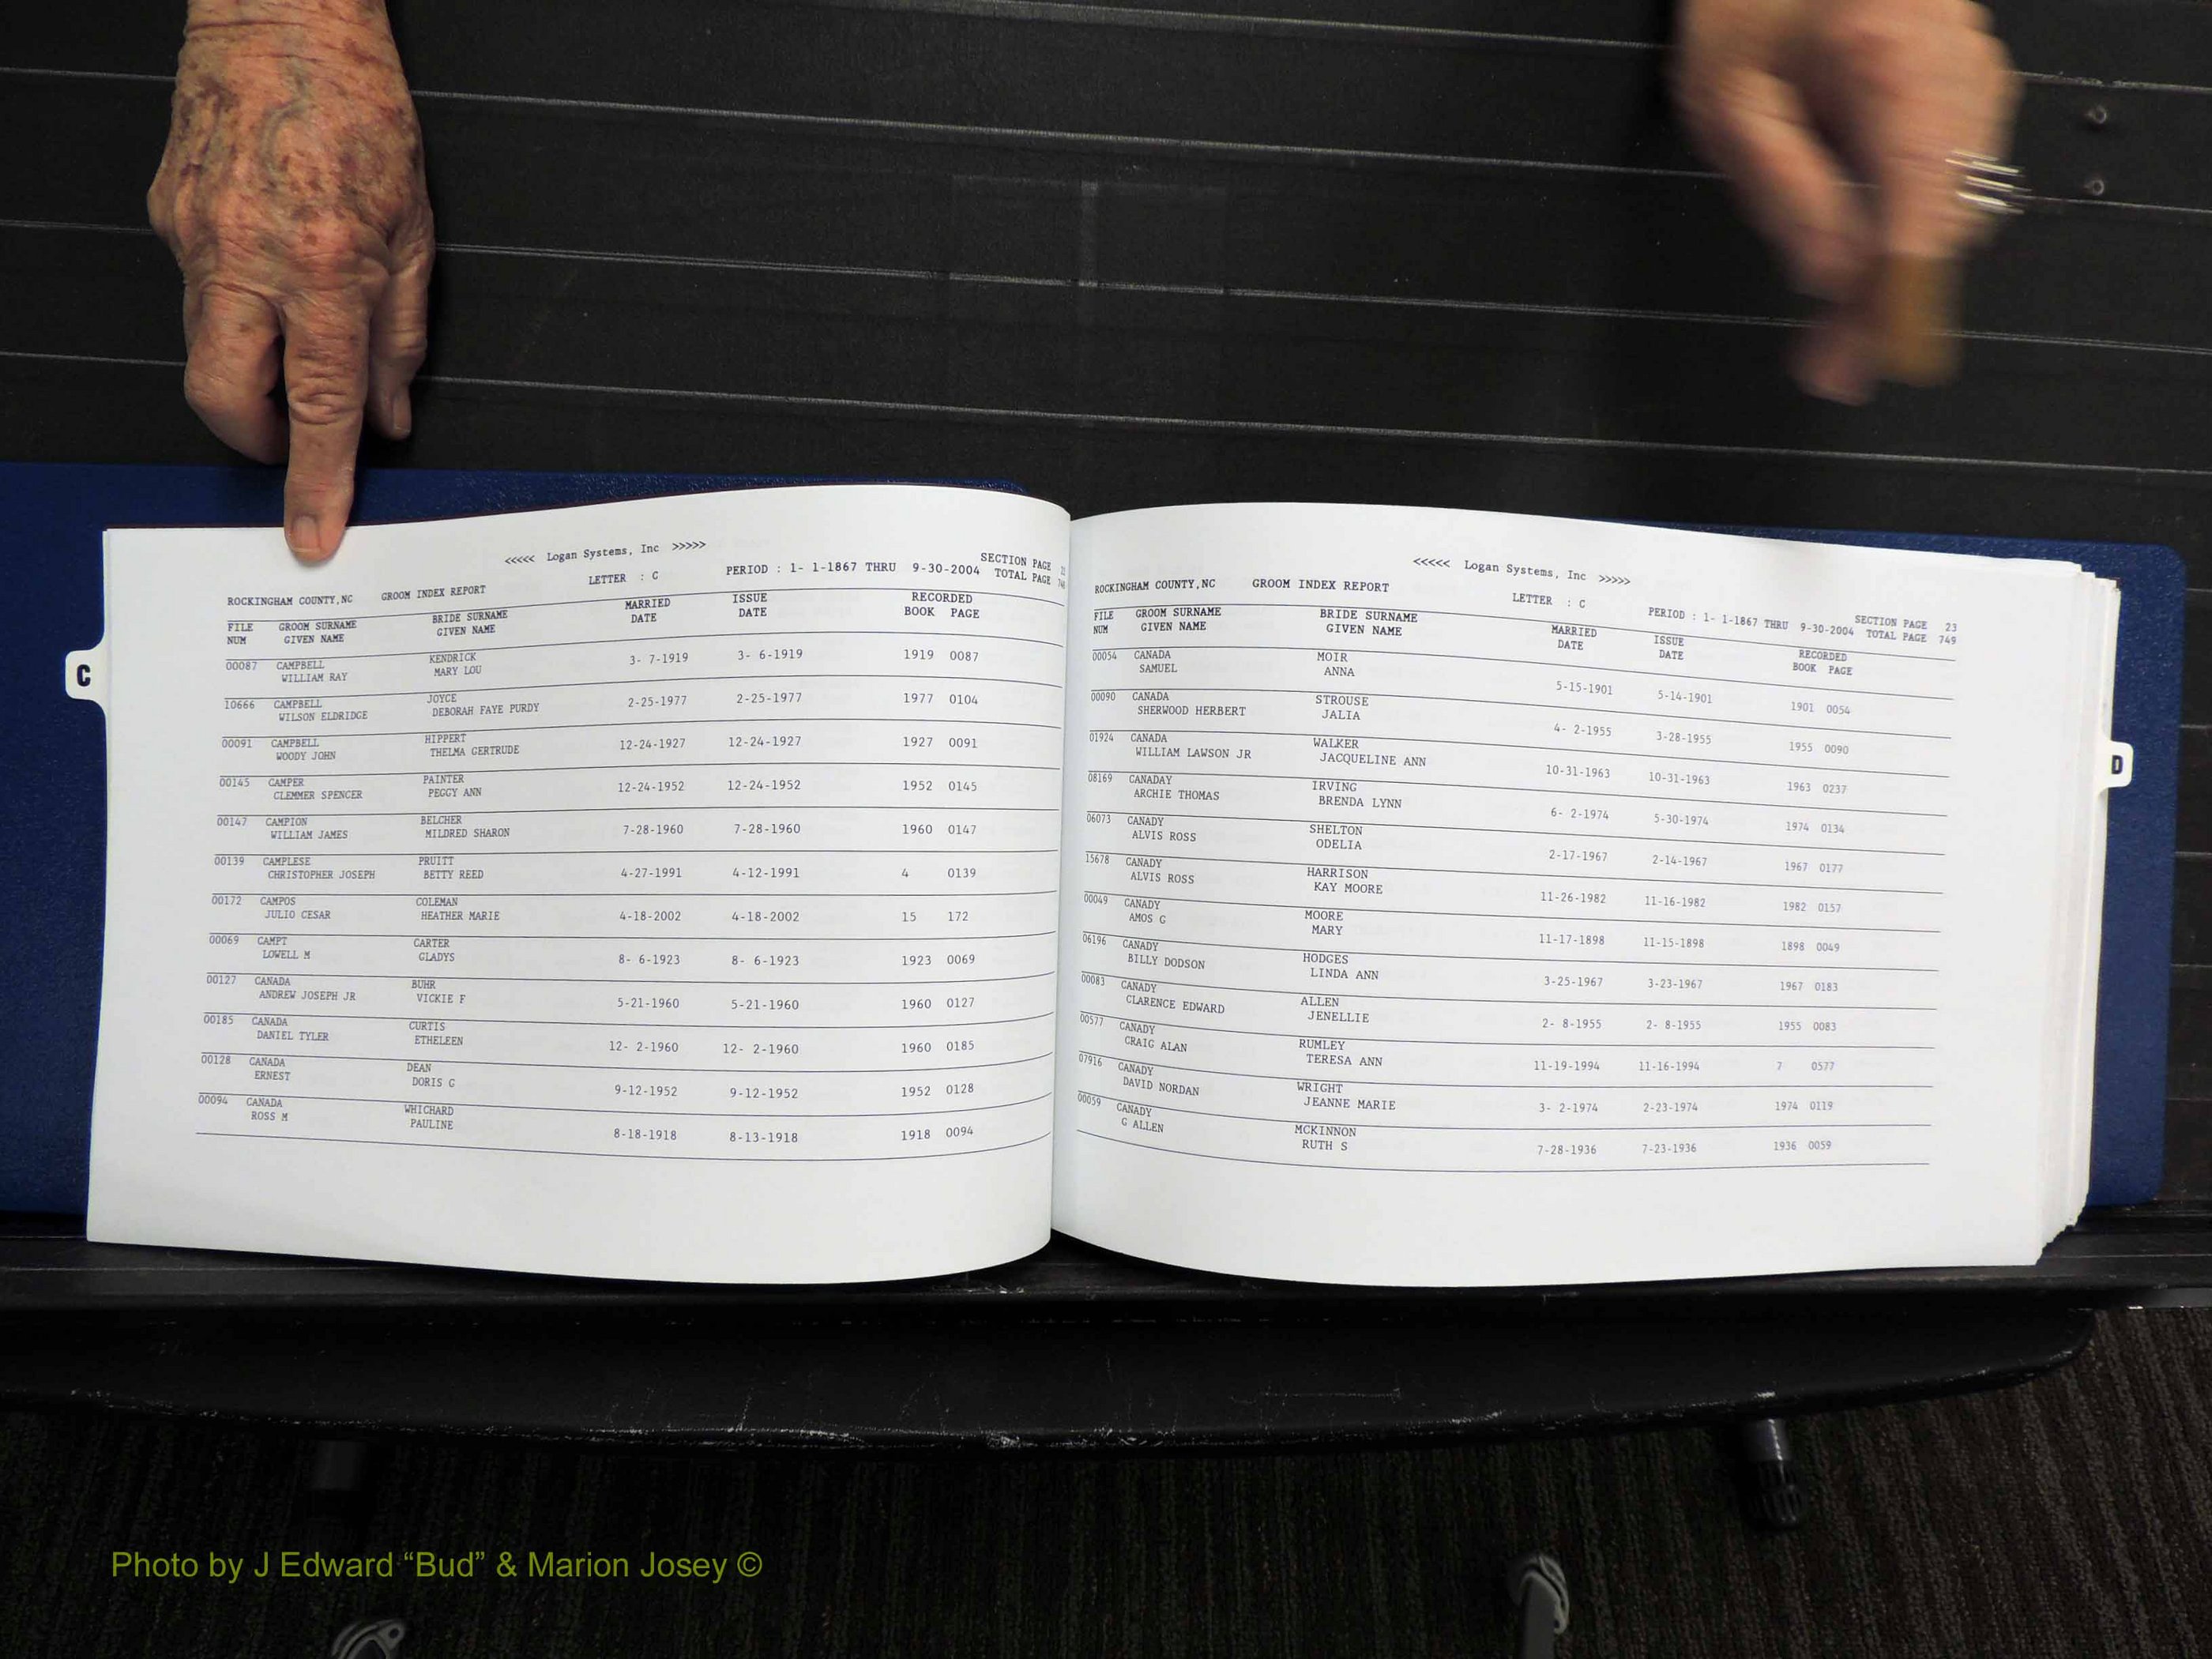 C
<<<<< Logan Systems, Inc >>>>>
SECTION PAGE
ROCKINGHAM COUNTY,NC GROOM INDEX REPORT LETTER : C PERIOD : 1- 1-1867 THRU 9-30-2004 TOTAL PAGE
FILE GROOM SURNAME BRIDE SURNAME MARRIED ISSUE RECORDED
NUM GIVEN NAME GIVEN NAME DATE DATE BOOK PAGE
00087 CAMPBELL KENDRICK 3- 7-1919 3- 6-1919 1919 0087
WILLIAM RAY MARY LOU
10666 CAMPBELL JOYCE 2-25-1977 2-25-1977 1977 0104
WILSON ELDRIDGE DEBORAH FAYE PURDY
00091 CAMPBELL HIPPERT 12-24-1927 12-24-1927 1927 0091
WOODY JOHN THELMA GERTRUDE
00145 CAMPER PAINTER 12-24-1952 12-24-1952 1952 0145
CLEMMER SPENCER PEGGY ANN
00147 CAMPION BELCHER 7-28-1960 7-28-1960 1960 0147
WILLIAM JAMES MILDRED SHARON
00139 CAMPLESE PRUITT 4-27-1991 4-12-1991 4 0139
CHRISTOPHER JOSEPH BETTY REED
00172 CAMPOS COLEMAN 4-18-2002 4-18-2002 15 172
JULIO CESAR HEATHER MARIE
00069 CAMPT CARTER 8- 6-1923 8- 6-1923 1923 0069
LOWELL M GLADYS
00127 CANADA BUHR 5-21-1960 5-21-1960 1960 0127
ANDREW JOSEPH JR VICKIE F
00185 CANADA CURTIS 12- 2-1960 12- 2-1960 1960 0185
DANIEL TYLER ETHELEEN
00128 CANADA DEAN 9-12-1952 9-12-1952 1952 0128
ERNEST DORIS G
00094 CANADA WHICHARD 8-18-1918 8-13-1918 1918 0094
ROSS M PAULINE
<<<<< Logan Systems, Inc >>>>>
SECTION PAGE 23
ROCKINGHAM COUNTY,NC GROOM INDEX REPORT LETTER : C PERIOD : 1- 1-1867 THRU 9-30-2004 TOTAL PAGE 749
FILE GROOM SURNAME BRIDE SURNAME MARRIED ISSUE RECORDED
NUM GIVEN NAME GIVEN NAME DATE DATE BOOK PAGE
00054 CANADA MOIR 5-15-1901 5-14-1901 1901 0054
SAMUEL ANNA
00090 CANADA STROUSE 4- 2-1955 3-28-1955 1955 0090
SHERWOOD HERBERT JALIA
01924 CANADA WALKER 10-31-1963 10-31-1963 1963 0237
WILLIAM LAWSON JR JACQUELINE ANN
08169 CANADAY IRVING 6- 2-1974 5-30-1974 1974 0134
ARCHIE THOMAS BRENDA LYNN
06073 CANADY SHELTON 2-17-1967 2-14-1967 1967 0177
ALVIS ROSS ODELIA
15678 CANADY HARRISON 11-26-1982 11-16-1982 1982 0157
ALVIS ROSS KAY MOORE
00049 CANADY MOORE 11-17-1898 11-15-1898 1898 0049
AMOS G MARY
06196 CANADY HODGES 3-25-1967 3-23-1967 1967 0183
BILLY DODSON LINDA ANN
00083 CANADY ALLEN 2- 8-1955 2- 8-1955 1955 0083
CLARENCE EDWARD JENELLIE
00577 CANADY RUMLEY 11-19-1994 11-16-1994 7 0577
CRAIG ALAN TERESA ANN
07916 CANADY WRIGHT 3- 2-1974 2-23-1974 1974 0119
DAVID NORDAN JEANNE MARIE
00059 CANADY MCKINNON 7-28-1936 7-23-1936 1936 0059
G ALLEN RUTH S
D
Photo by J Edward “Bud” & Marion Josey ©